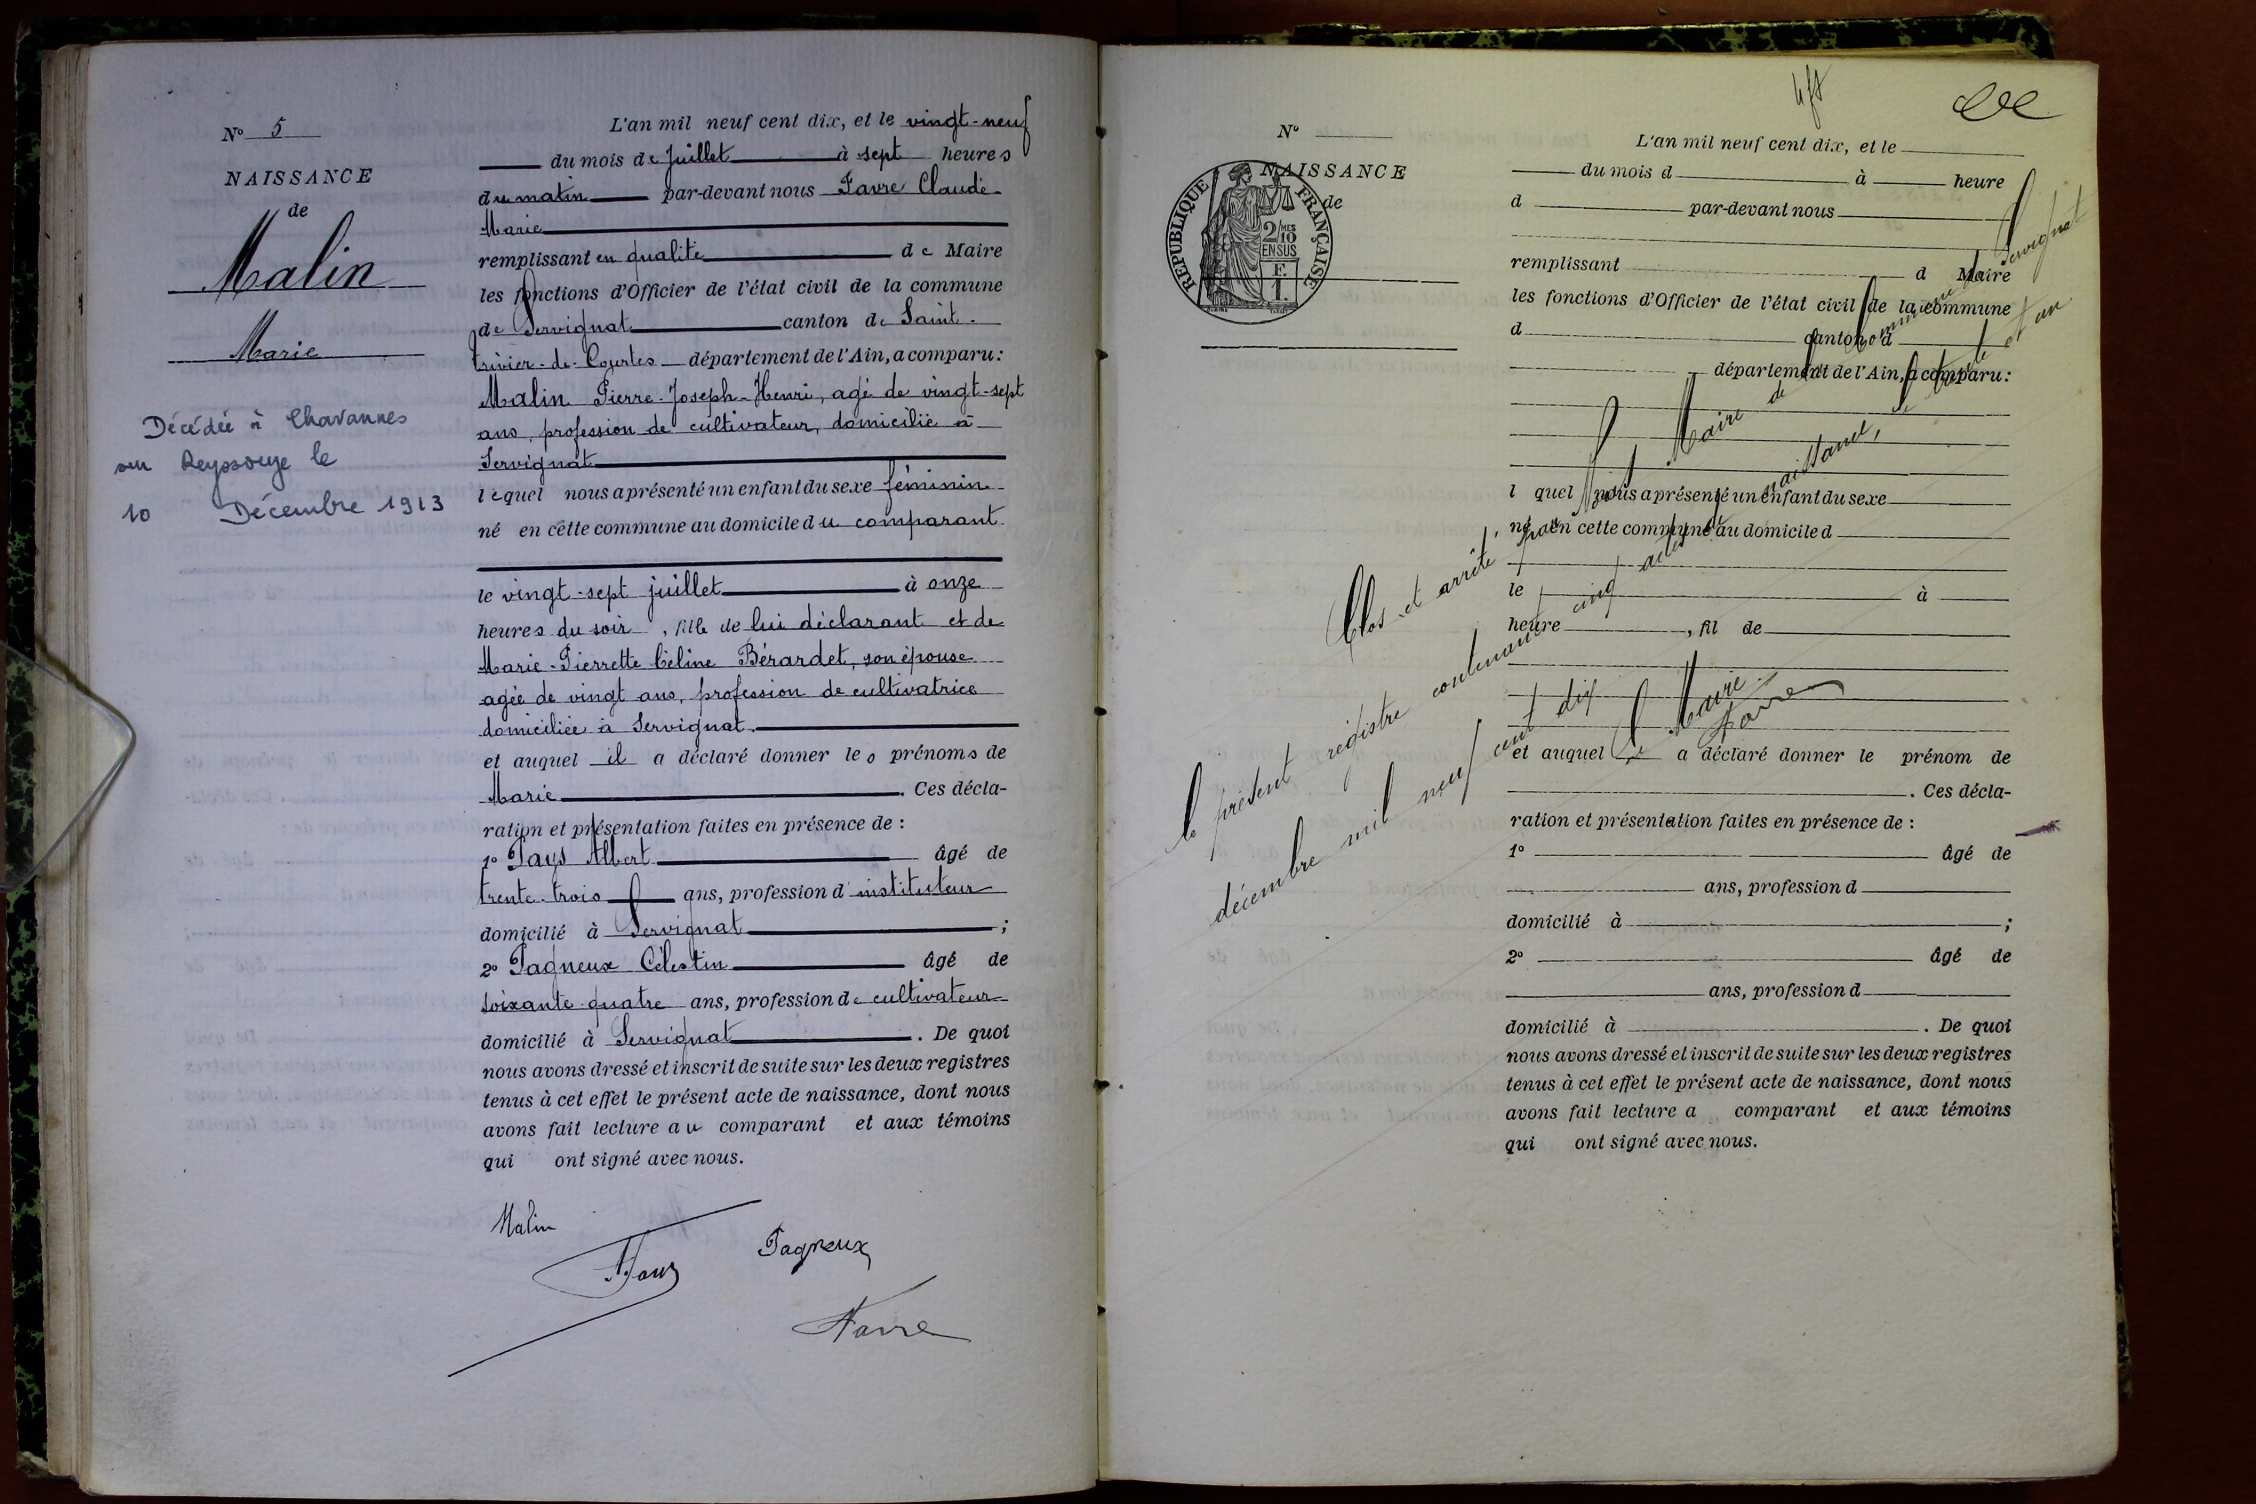 N° 5
NAISSANCE
de
Malin
Marie
Décédée à Chavannes
sur Reyssouze le
10 Décembre 1913
L'an mil neuf cent dix, et le vingt-neuf
du mois de Juillet à sept heures
du matin par-devant nous Favre Claude-
Marie
remplissant en qualité de Maire
les fonctions d'Officier de l'état civil de la commune
de Servignat canton de Saint-
trivier-de-Courtes département de l'Ain, a comparu:
Malin Pierre-Joseph-Henri, agé de vingt-sept
ans, profession de cultivateur, domicilié à
Servignat
lequel nous a présenté un enfant du sexe féminin
né en cette commune au domicile du comparant
le vingt-sept juillet à onze
heures du soir, fille de lui déclarant et de
Marie-Pierrette Céline Bérardet, son épouse
agée de vingt ans, profession de cultivatrice
domiciliée à Servignat.
et auquel il a déclaré donner les prénoms de
Marie. Ces décla-
ration et présentation faites en présence de :
1° Pays Albert âgé de
trente-trois ans, profession d'instituteur
domicilié à Servignat ;
2° Pagneux Célestin âgé de
soixante-quatre ans, profession de cultivateur
domicilié à Servignat. De quoi
nous avons dressé et inscrit de suite sur les deux registres
tenus à cet effet le présent acte de naissance, dont nous
avons fait lecture au comparant et aux témoins
qui ont signé avec nous.
Malin
A. Pays
Pagneux
Favre
N°
NAISSANCE
de
RÉPUBLIQUE FRANÇAISE
2/10 MES
EN SUS
L'an mil neuf cent dix, et le
du mois d à heure
d par-devant nous
remplissant d Maire
les fonctions d'Officier de l'état civil de la commune
d canton d
département de l'Ain, a comparu:
l quel nous a présenté un enfant du sexe
né en cette commune au domicile d
le à
heure , fil de
et auquel a déclaré donner le prénom de
. Ces décla-
ration et présentation faites en présence de :
1° âgé de
ans, profession d
domicilié à ;
2° âgé de
ans, profession d
domicilié à . De quoi
nous avons dressé et inscrit de suite sur les deux registres
tenus à cet effet le présent acte de naissance, dont nous
avons fait lecture a comparant et aux témoins
qui ont signé avec nous.
Clos et arrêté, par Nous, Maire de la Commune de Servignat
le présent registre contenant cinq actes de naissance, le trente et un
décembre mil neuf cent dix
Le Maire
Favre